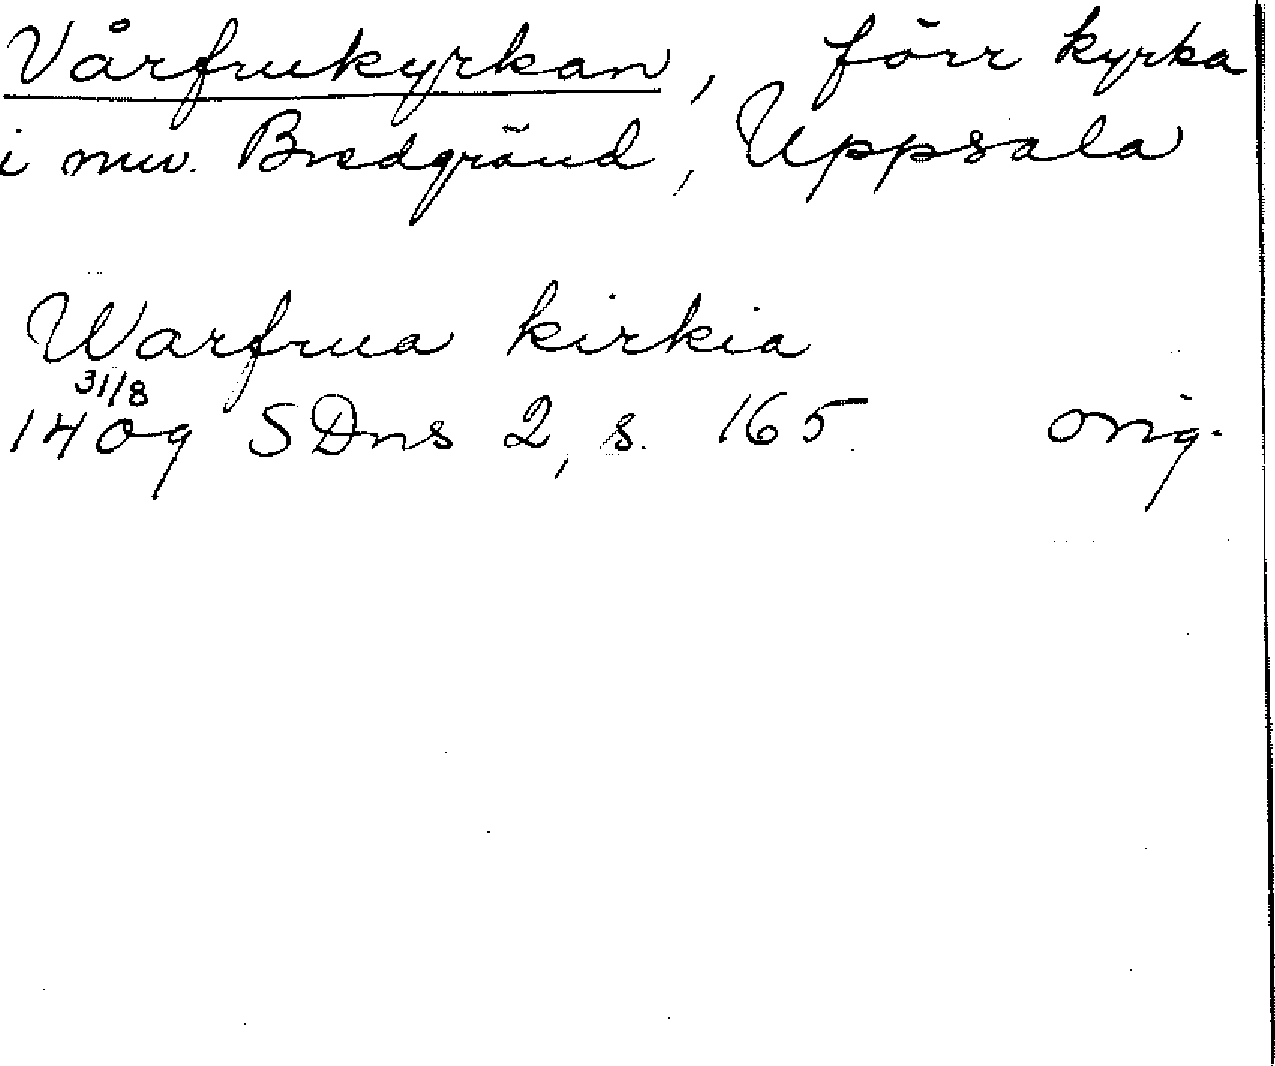 Vårfrukyrkan, förr kyrka
i nuv. Bredgränd, Uppsala
Warfrua kirkia
31/8
1409 SDns 2, s. 165. orig.